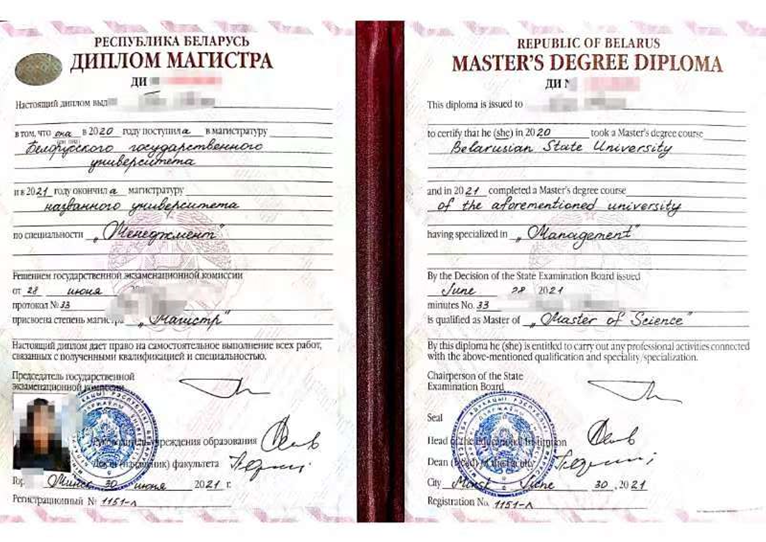 РЕСПУБЛИКА БЕЛАРУСЬ
ДИПЛОМ МАГИСТРА
ДИ
Настоящий диплом выд
в том, что она в 2020 году поступила в магистратуру
Белорусского государственного
университета
и в 2021 году окончила магистратуру
названного университета
по специальности „Менеджмент"
Решением государственной экзаменационной комиссии
от 28 июня
протокол № 33
присвоена степень магистра „Магистр"
Настоящий диплом дает право на самостоятельное выполнение всех работ,
связанных с полученными квалификацией и специальностью.
Председатель государственной
экзаменационной комиссии
учреждения образования
факультета
Минск 30 июня 2021 г.
Регистрационный № 1151-л
REPUBLIC OF BELARUS
MASTER'S DEGREE DIPLOMA
ДИ №
This diploma is issued to
to certify that he (she) in 2020 took a Master's degree course
Belarusian State University
and in 2021 completed a Master's degree course
of the aforementioned university
having specialized in „Management"
By the Decision of the State Examination Board issued
June 28 2021
minutes No. 33
is qualified as Master of „Master of Science"
By this diploma he (she) is entitled to carry out any professional activities connected
with the above-mentioned qualification and speciality/specialization.
Chairperson of the State
Examination Board
Seal
Head of the Educational Institution
Dean (Head) of the Faculty
City Minsk June 30, 2021
Registration No. 1151-л